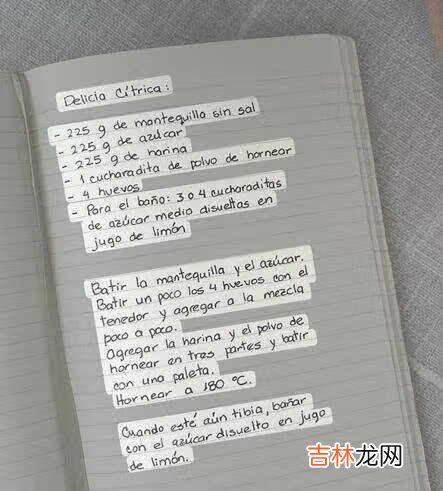 Delicia Cítrica:
- 225 g de mantequilla sin sal
- 225 g de azúcar
- 225 g de harina
- 1 cucharadita de polvo de hornear
- 4 huevos
- Para el baño: 3 o 4 cucharaditas
de azúcar medio disueltas en
jugo de limón
Batir la mantequilla y el azúcar.
Batir un poco los 4 huevos con el
tenedor y agregar a la mezcla
poco a poco.
Agregar la harina y el polvo de
hornear en tres partes y batir
con una paleta.
Hornear a 180 °C.
Cuando esté aún tibia, bañar
con el azúcar disuelto en jugo
de limón.
吉林龙网